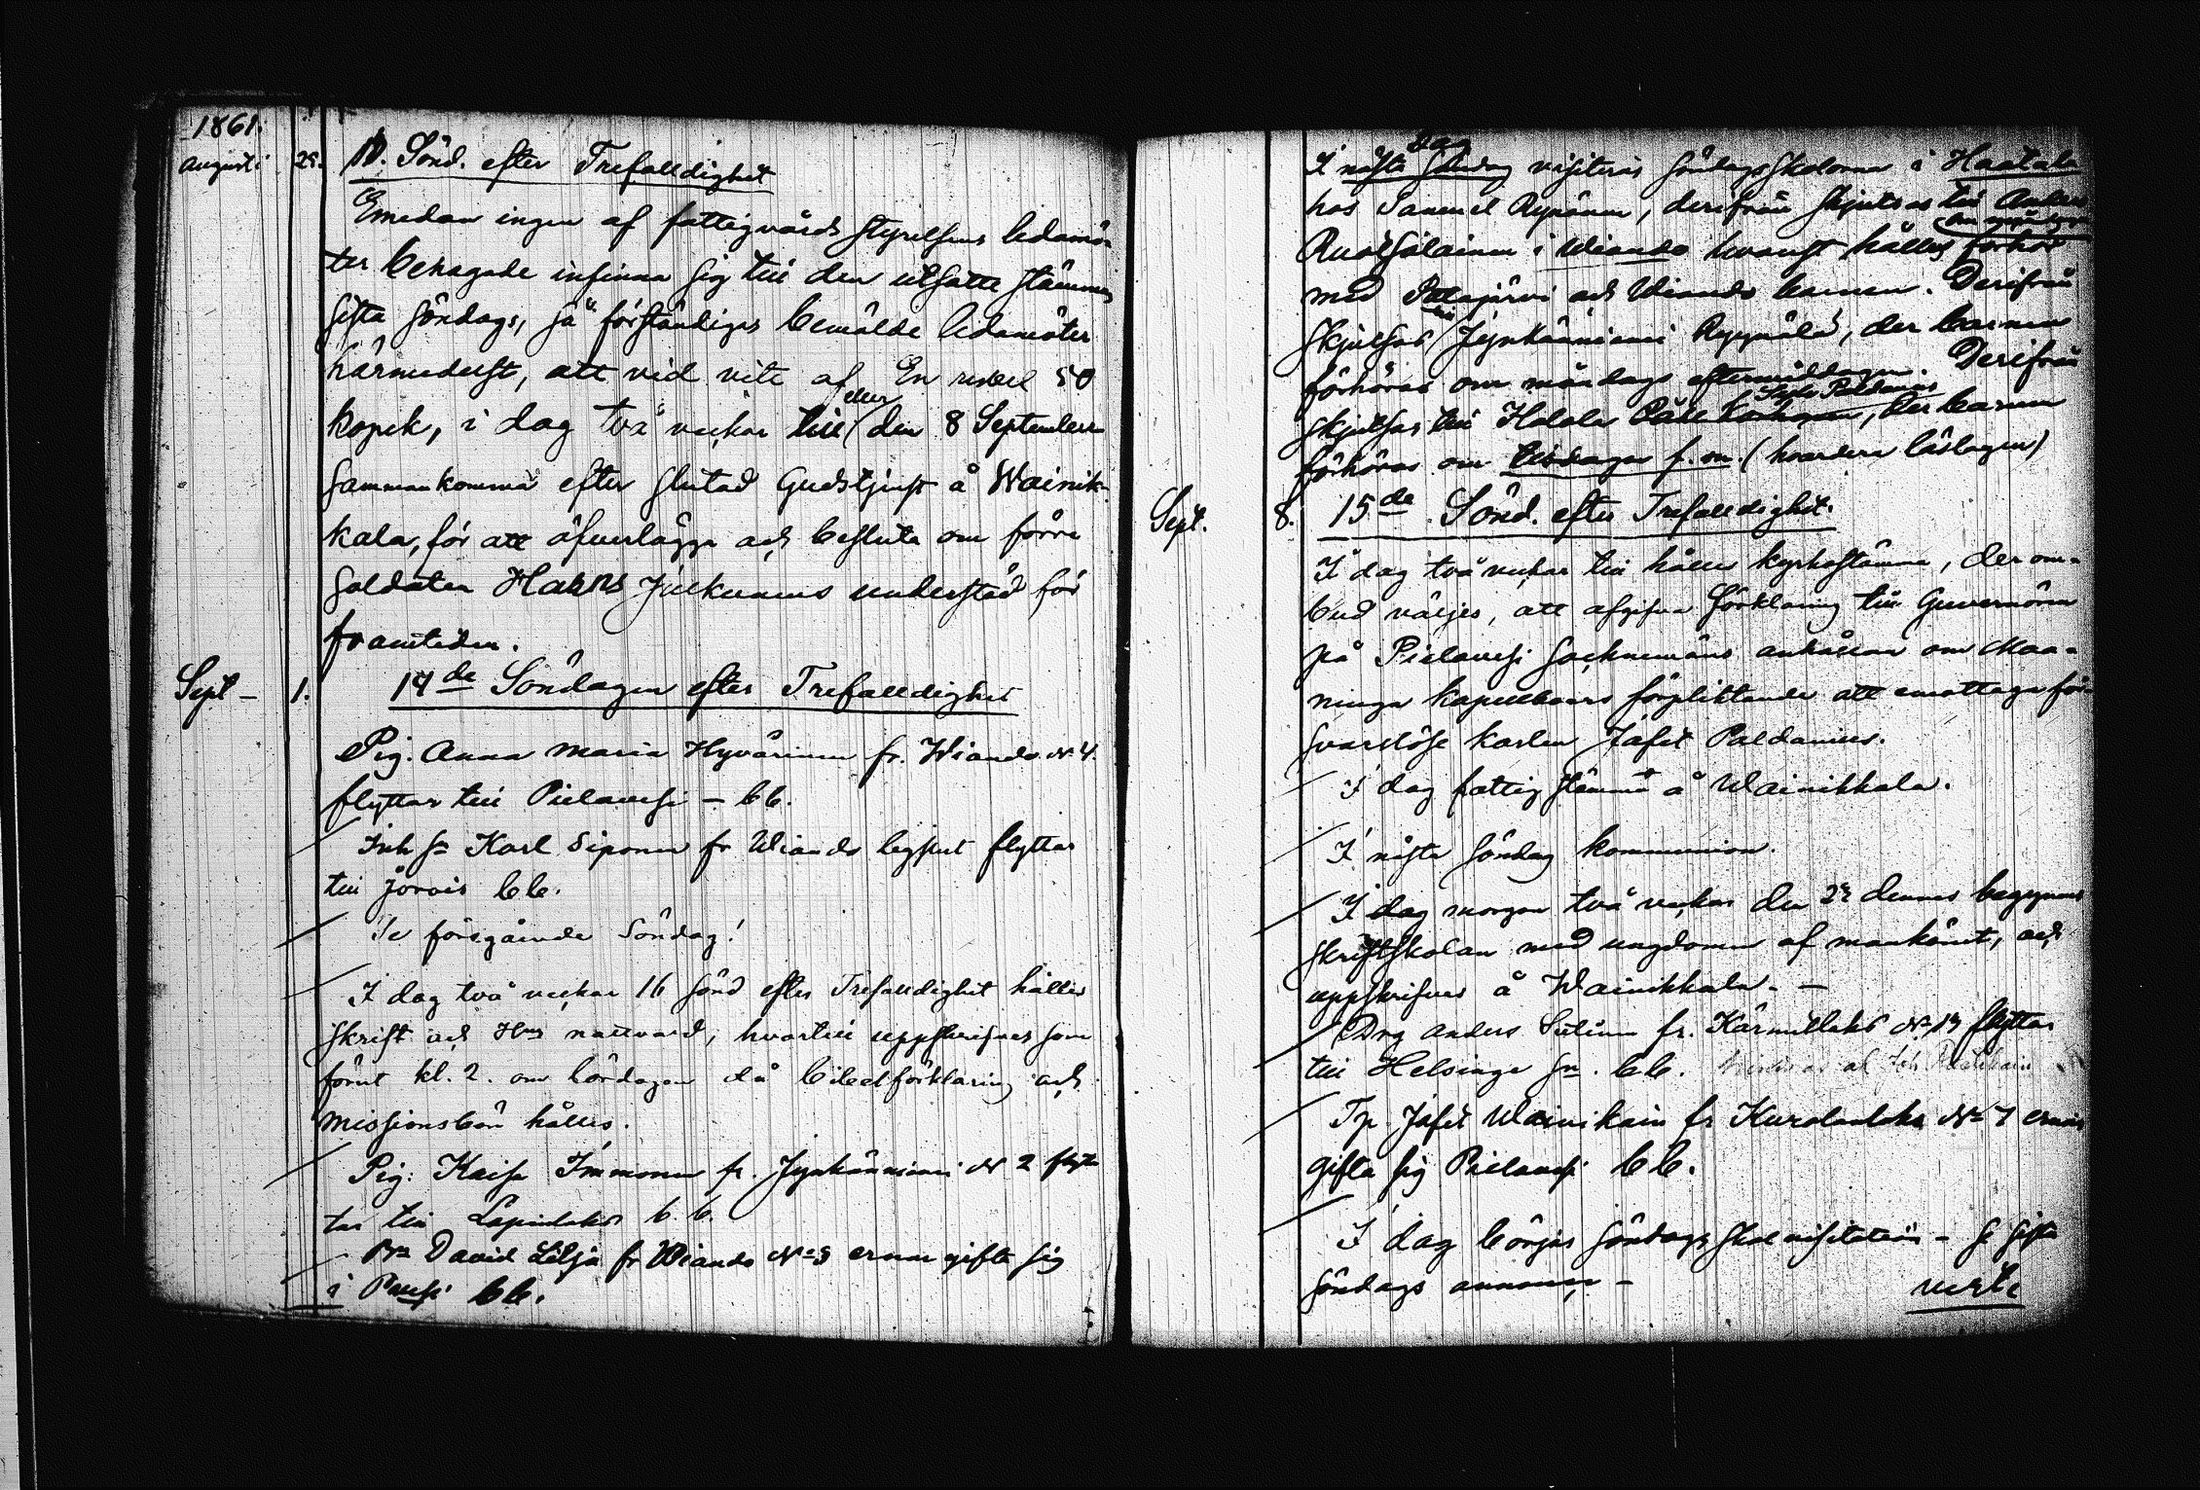 1861.
Augusti 25. 13. Sönd. efter Trefalldighet
Emedan ingen af fattigvårds styrelsens ledamö-
ter behagade infinna sig till den utsatte stämman
sista söndags, så förständigas bemälde ledamöter
härmedelst, att vid vite af En rubel 50
kopek, i dag två veckor till eller den 8 September
sammankomma efter slutad Gudstjenst å Wainik-
kala, för att öfverlägga och besluta om förre
soldaten Hans Julkunens underståd för
framtiden.
Sept – 1. 14de Söndagen efter Trefalldighet
Pig. Anna Maria Hyvärinen fr. Wiando N 4.
flyttar till Pielavesi – bb.
Inh sn Karl Siponen fr Wiando flyttar
till Jorois bb.
Se föregående Söndag!
I dag två veckor 16 sönd efter Trefalldighet hålles
skrift och Hns nattvard, hvartill uppskrifves som
förut kl. 2. om lördagen då bibelförklaring och
missionsbön hålles.
Pig: Kaisa Immonen fr. Jynkänniemi N 2 flyt-
tar till Lapinlaks b.b.
David Lilja fr Wiando No 3 ernar gifta sig
i bb.
I nästa Söndag dag visiteras söndagsskolorna i Haatala
hos Samuel Rynänen, derifrån skjutsas till Anders
Ruotsalainen i Wiando hvarest hålles förhör om måndag
med Patajärvi och Wiando barnen. Derifrån
skjutsas till Jynkänniemi, der barnen
förhöras om måndags eftermiddagen. Derifrån
skjutsas till Halola Paldanius, der barnen
förhöras om tisdagen f.m. (hvardera läslagen)
Sept. 8. 15de Sönd. efter Trefalldighet.
I dag två veckor till hålles kyrkostämma, der om-
bud väljes, att afgifva förklaring till Guvernören
på Pielavesi sockenmäns anhållan om Maa-
ninga kapellboars förpliktande att emottaga för-
svarslöse karlen Jafet Paldanius.
I dag fattigstämma å Wainikkala.
I nästa söndag kommunion.
I dag morgon två veckor den 23 dennes begynnes
skriftskolan med ungdomen af mankönet, och
uppskrifves å Wainikkala. –
Drg Anders Sutinen fr. Kärmillaks No 13 flyttar
till Helsinge sn. bb.
Jafet Wainikain fr Kurolanlaks No 7 ernar
gifta sig Pielavesi bb.
I dag börjas söndagsskol visitation – se sista
söndags annons –
verte